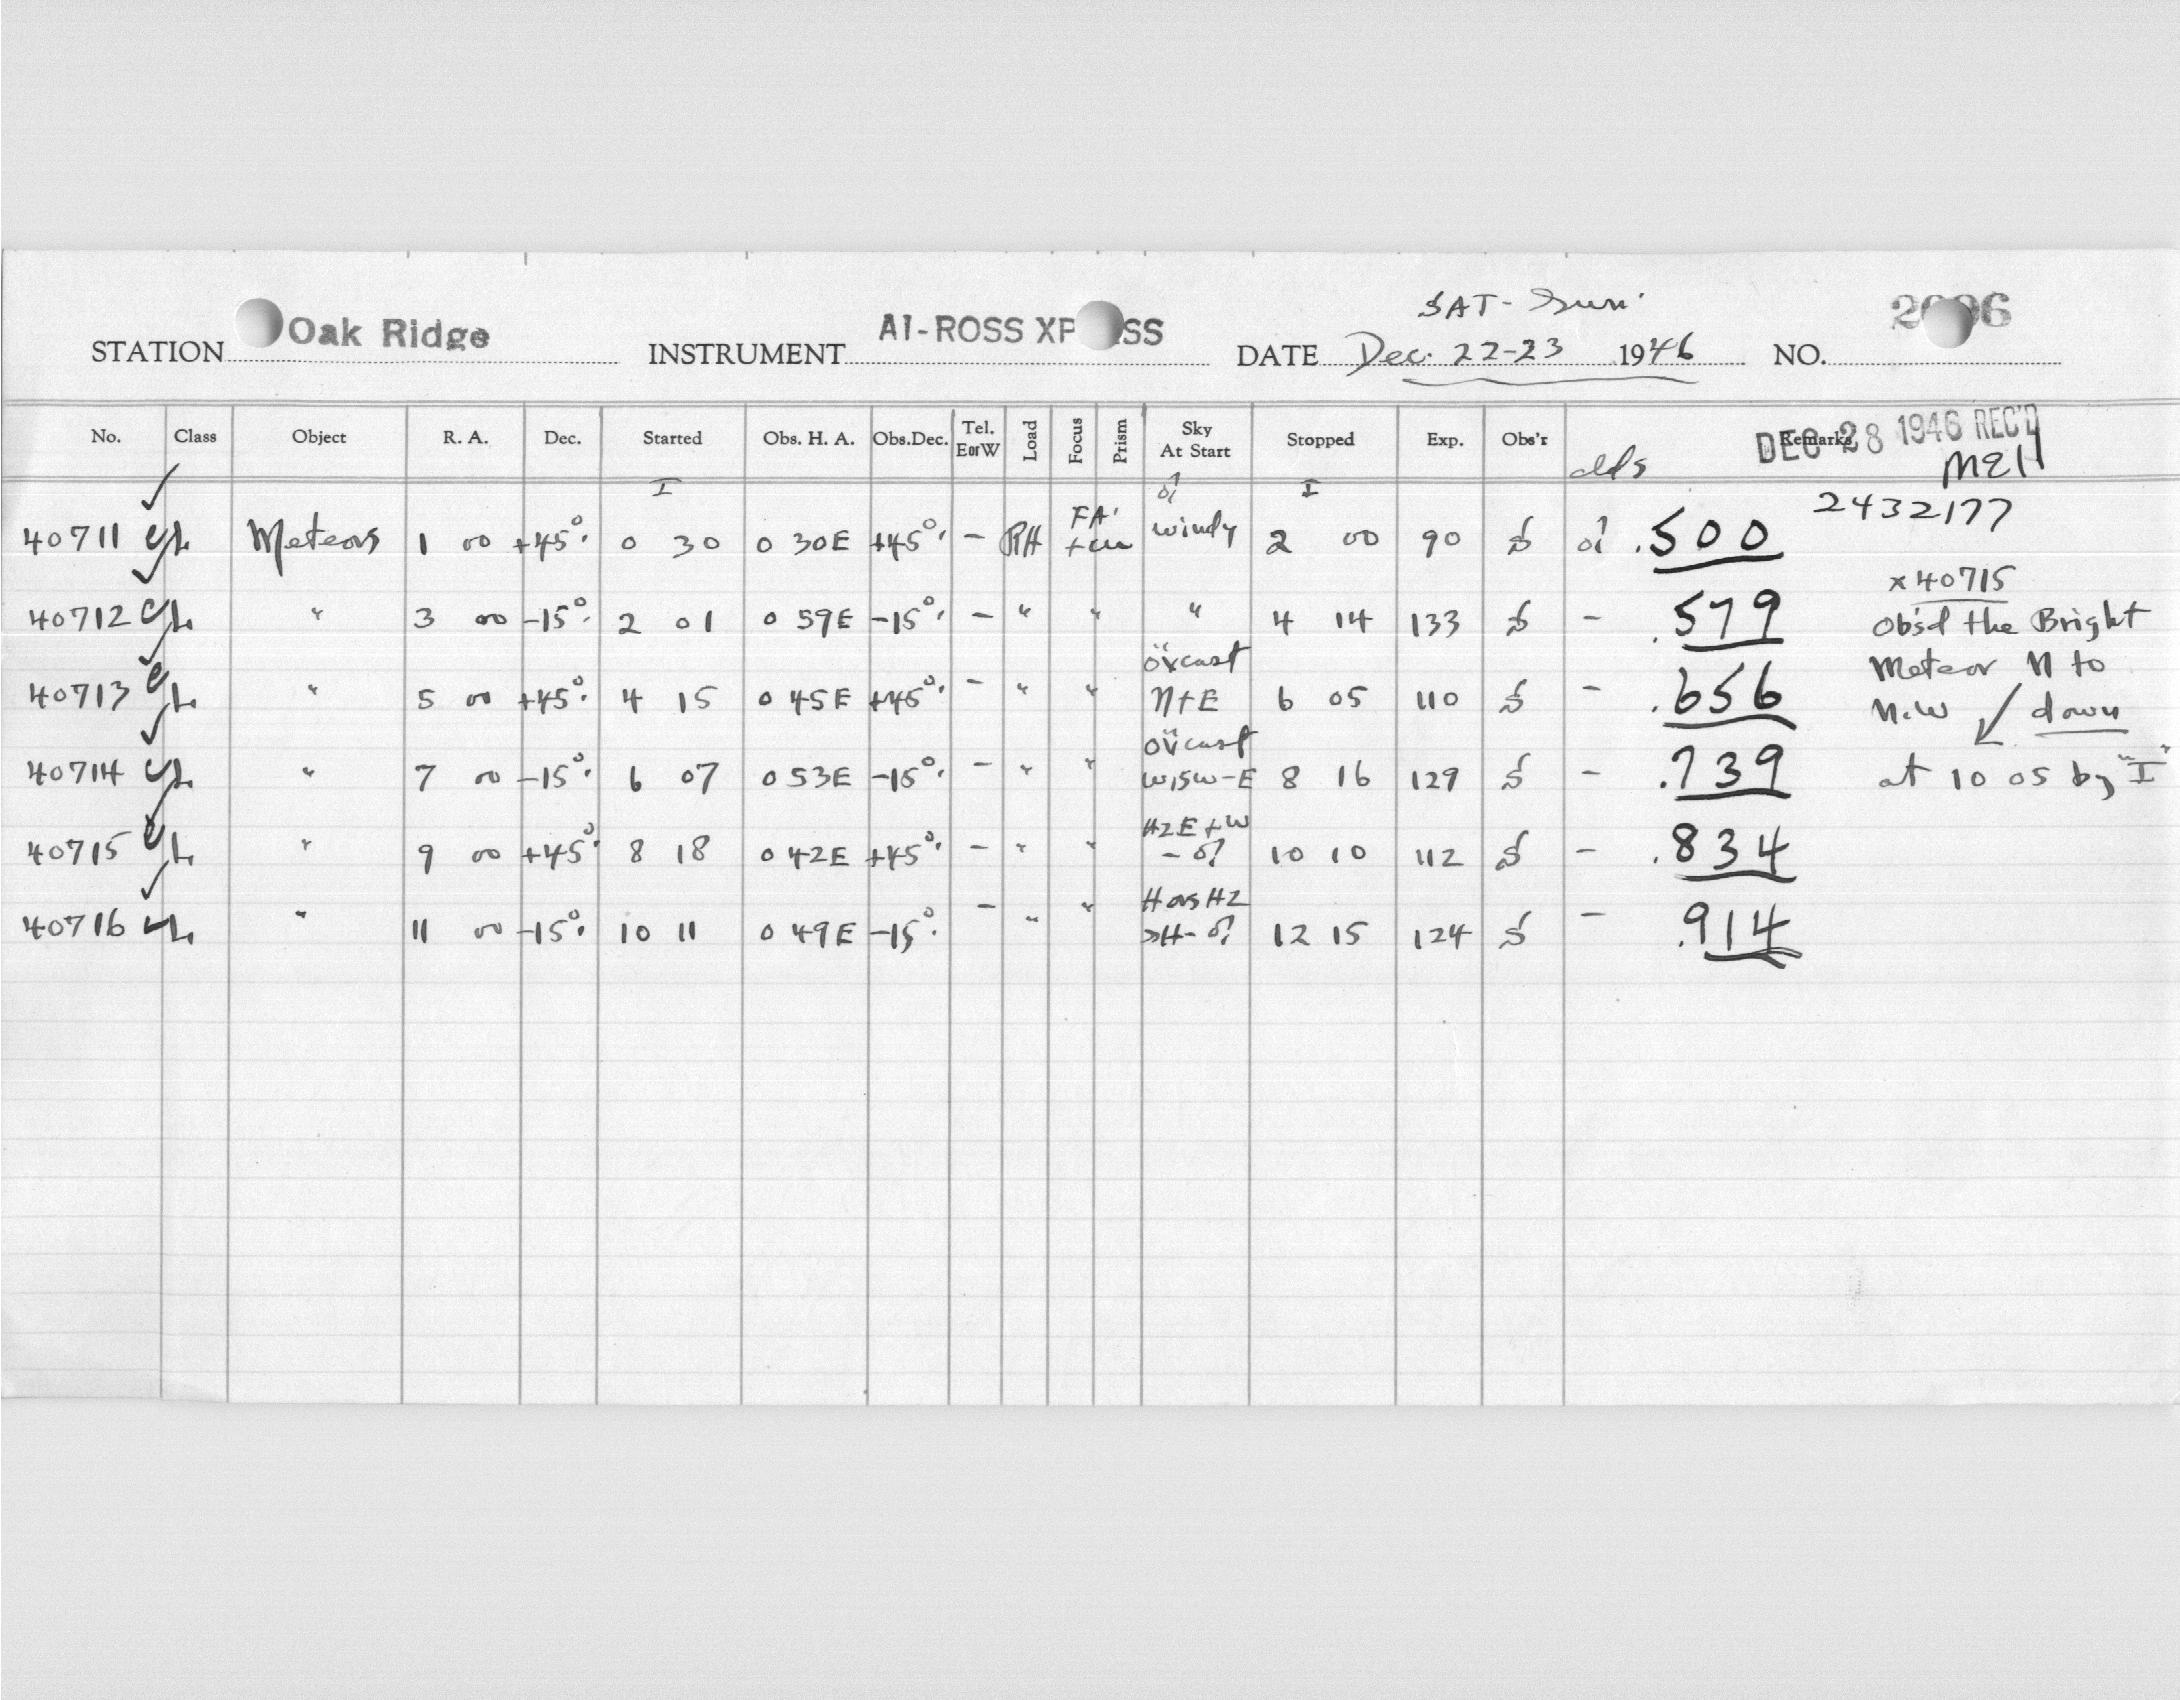 SAT-Sun.
STATION Oak Ridge INSTRUMENT AI-ROSS XP SS DATE Dec. 22-23 1946 NO. 2 6
No. Class Object R. A. Dec. Started Obs. H. A. Obs.Dec. Tel. EorW Load Focus Prism Sky At Start Stopped Exp. Obs'r Remarks
DEC 28 1946 REC'D
MEH
I I
2432177
40711 Meteors 1 00 +45°. 0 30 0 30E +45°. - RH FA' windy 2 00 90 .500
40712 " 3 00 -15°. 2 01 0 59E -15°. - " " " 4 14 133 - .579
40713 " 5 00 +45°. 4 15 0 45E +45°. - " " övcast N+E 6 05 110 - .656
40714 " 7 00 -15°. 6 07 0 53E -15°. - " " övcast W15W-E 8 16 129 - .739
40715 " 9 00 +45°. 8 18 0 42E +45°. - " " HZ E+W 10 10 112 - .834
40716 " 11 00 -15°. 10 11 0 49E -15°. - " " 12 15 124 - .914
x 40715
Obs'd the Bright
Meteor N to
N.W ↙ down
at 10 05 by "I"